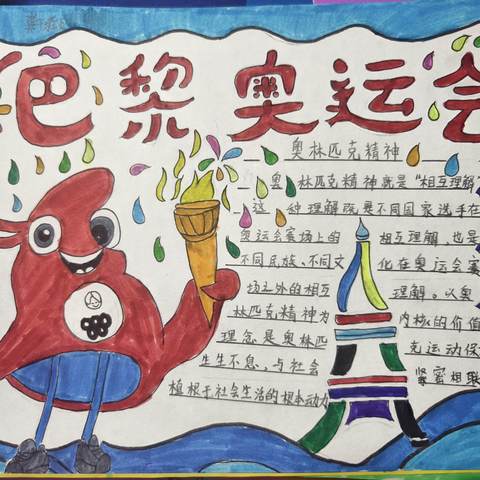 巴黎奥运会
奥林匹克精神
奥林匹克精神就是“相互理解
这种理解既是不同国家选手在
奥运会赛场上的相互理解,也是
不同民族、不同文化在奥运会赛
场之外的相互理解。以奥
林匹克精神为内核的价值
理念是奥林匹克运动保
生生不息,与社会紧密相联
植根于社会生活的根本动力